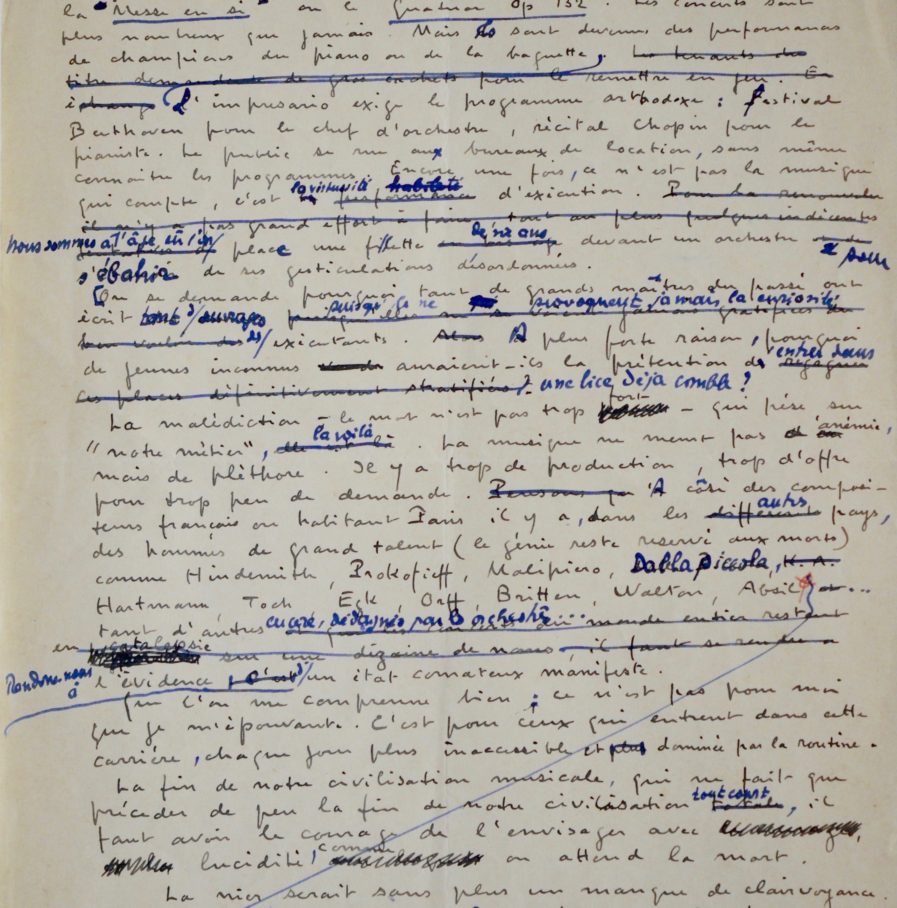 la "Messe en si" ou le Quatuor Op 132. Les concerts sont
plus nombreux que jamais. Mais ils sont devenus des performances
de champions du piano ou de la baguette. Les tenants du
titre demandent de gros cachets pour le remettre en jeu. En
échange L'impresario exige le programme orthodoxe : Festival
Beethoven pour le chef d'orchestre, récital Chopin pour le
pianiste. Le public se rue aux bureaux de location, sans même
connaître les programmes. Encore une fois, ce n'est pas la musique
la virtuosité habileté
qui compte, c'est performance d'exécution. Pour la renouveler
il n'y a pas grand effort à faire, tout au plus quelques indécentes
Nous sommes à l'âge où l'on place une fillette de six ans devant un orchestre et pour
s'ébahir de ses gesticulations désordonnées.
On se demande pourquoi tant de grands maîtres du passé ont
puisque ça ne provoquent jamais la curiosité
écrit tant d'ouvrages
bon vouloir des exécutants. Alors A plus forte raison, pourquoi
de jeunes inconnus auraient-ils la prétention d'entrer dans
ces places définitivement stratifiées ? une lice déjà comble ?
La malédiction – le mot n'est pas trop fort – qui pèse sur
"notre métier", la voilà. La musique ne meurt pas d'anémie,
mais de pléthore. Il y a trop de production, trop d'offre
pour trop peu de demande. Pensons qu' A côté des composi-
teurs français ou habitant Paris il y a, dans les différents autres pays,
des hommes de grand talent (le génie reste réservé aux morts)
comme Hindemith, Prokofieff, Malipiero, Dallapiccola, K. A.
Hartmann, Toch, Egk, Orff, Britten, Walton, Absil, et...
tant d'autres encore, dédaignés par les orchestres... du monde entier restent
en catalepsie sur une dizaine de noms, il faut se rendre à
Rendons-nous à
l'évidence, c'est d'un état comateux manifeste.
Que l'on me comprenne bien ; ce n'est pas pour moi
que je m'épouvante. C'est pour ceux qui entrent dans cette
carrière, chaque jour plus inaccessible et plus dominée par la routine.
La fin de notre civilisation musicale, qui ne fait que
précéder de peu la fin de notre civilisation totale tout court, il
faut avoir le courage de l'envisager avec
lucidité, comme on attend la mort.
La nier serait sans plus un manque de clairvoyance.